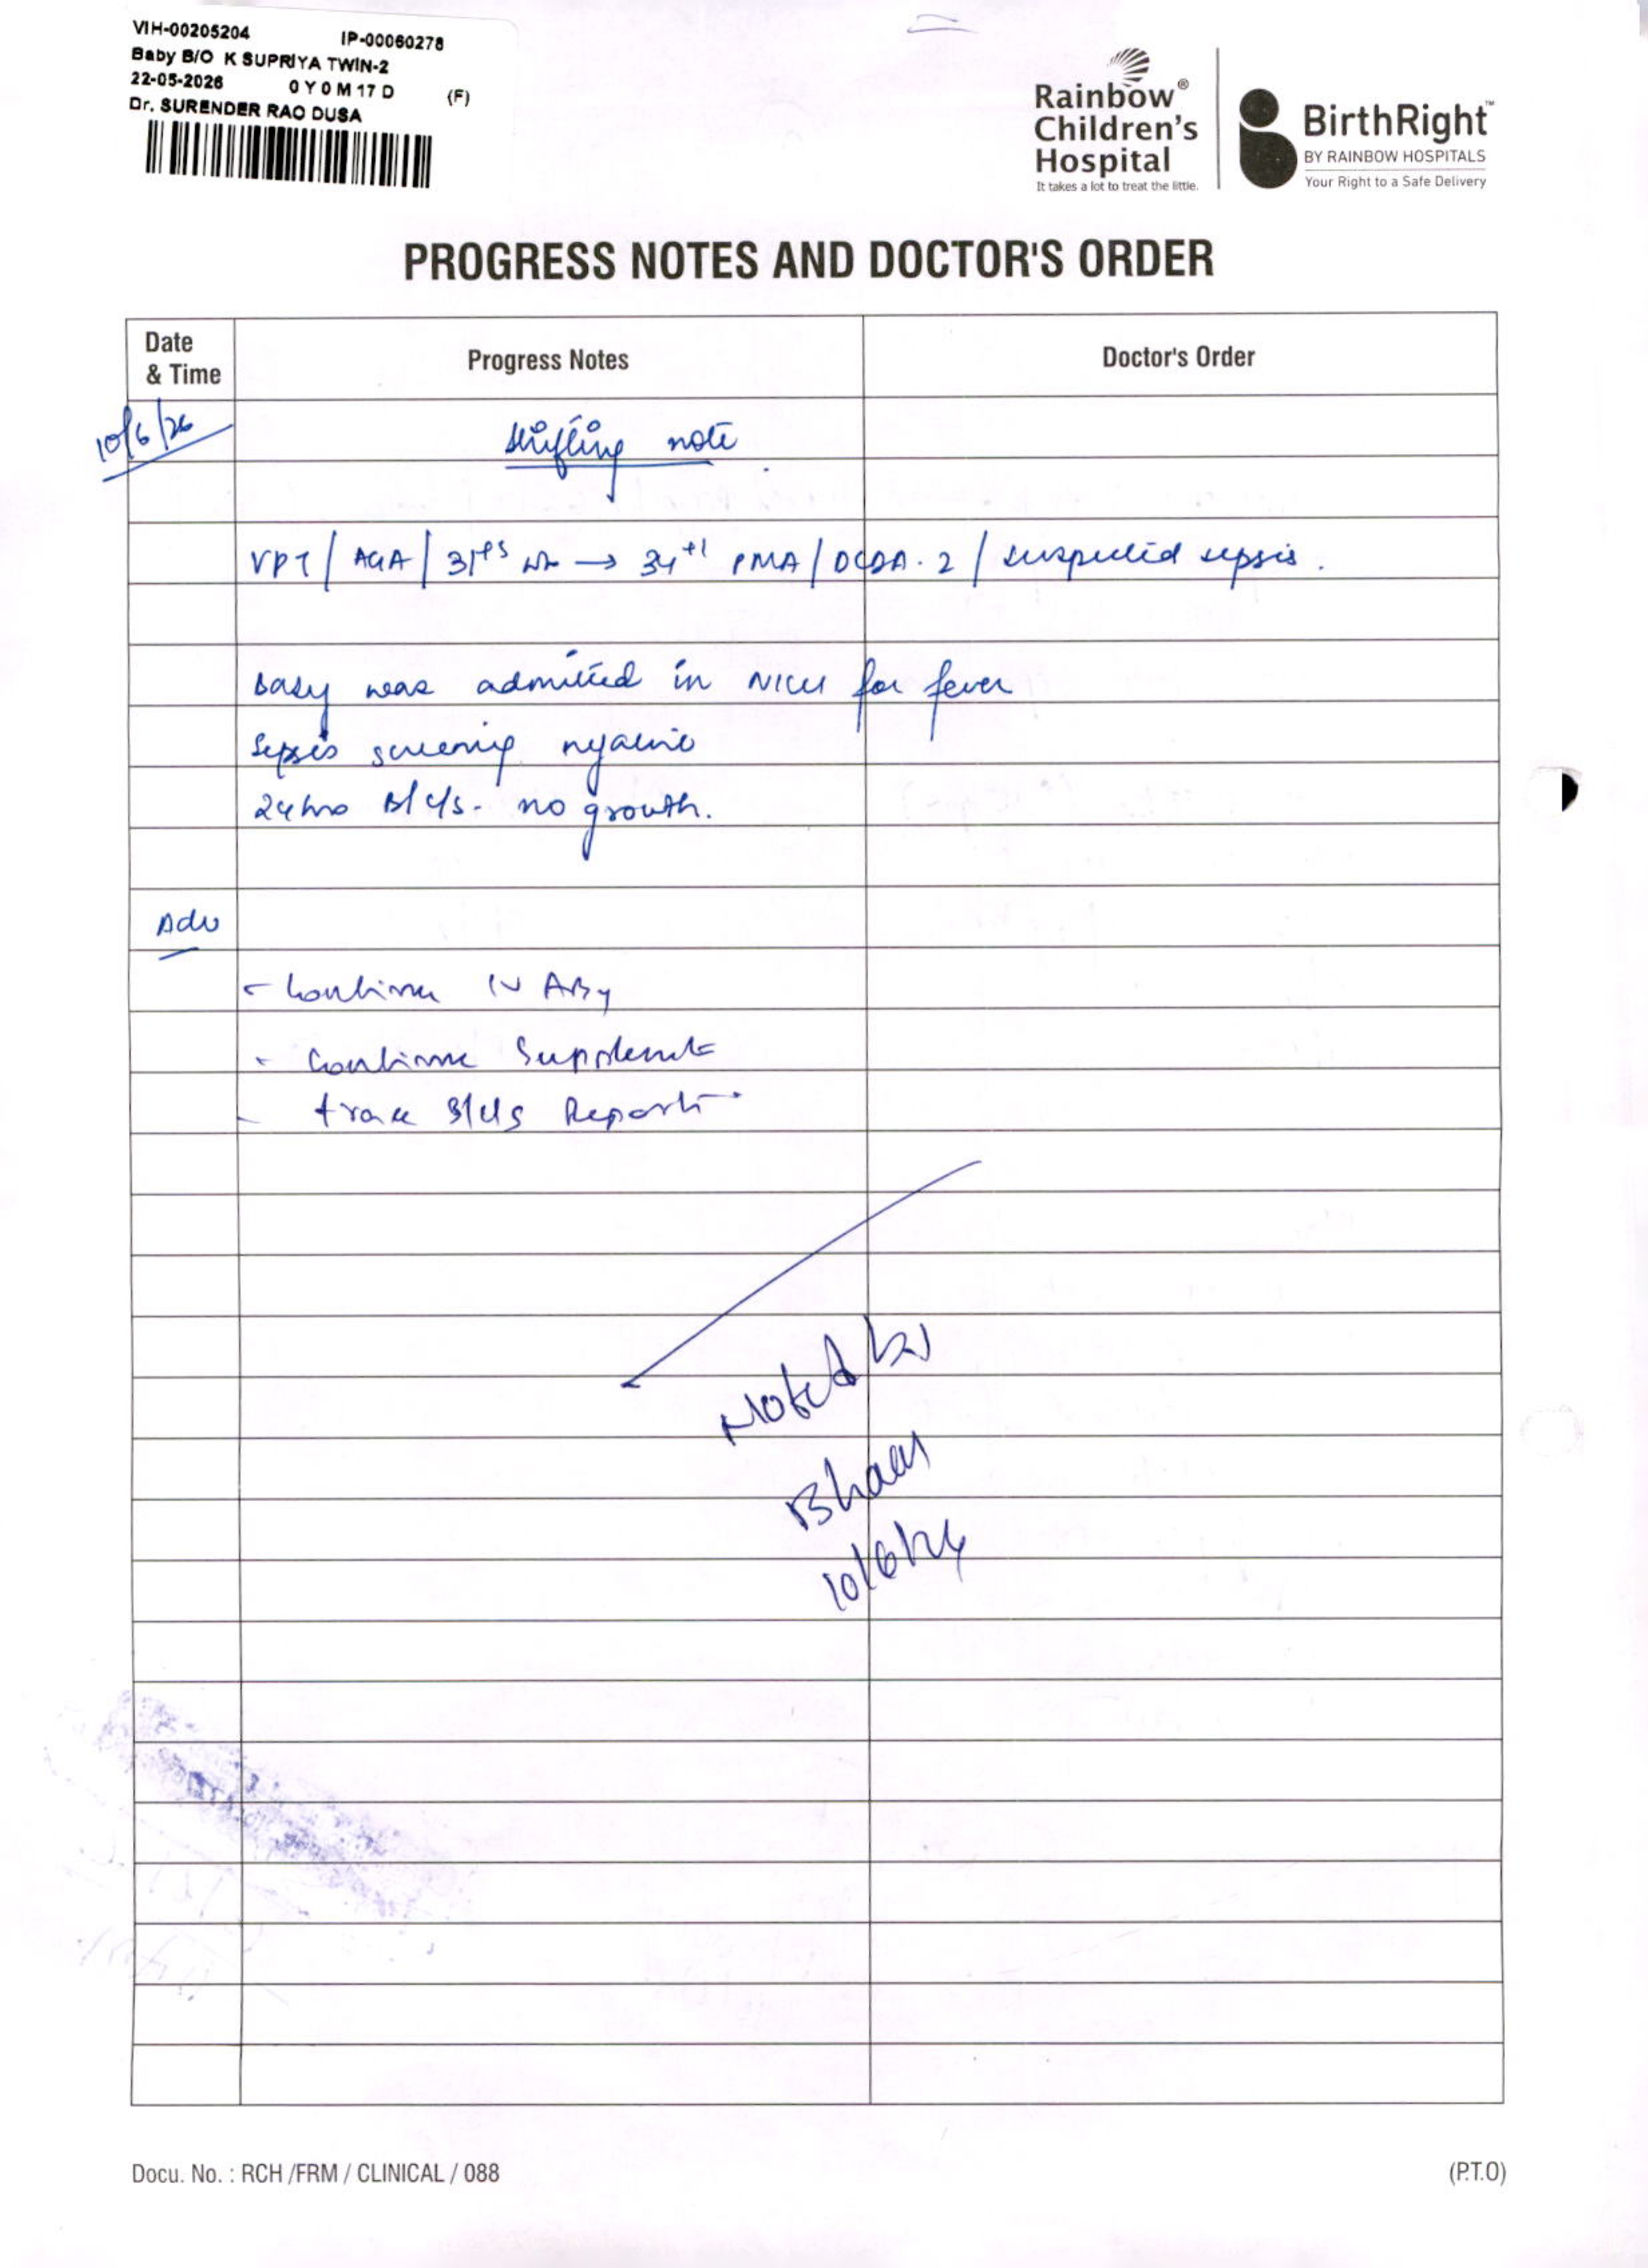 VIH-00205204 IP-00060278
Baby B/O K SUPRIYA TWIN-2
22-05-2026 0 Y 0 M 17 D (F)
Dr. SURENDER RAO DUSA
Rainbow®
Children's
Hospital
It takes a lot to treat the little.
BirthRight™
BY RAINBOW HOSPITALS
Your Right to a Safe Delivery
PROGRESS NOTES AND DOCTOR'S ORDER
Date
& Time
Progress Notes
Doctor's Order
10/6/26
shifting note
VPT / AGA / 31+5 wk → 34+1 PMA / DCDA. 2 / suspected sepsis.
Baby was admitted in NICU for fever
Sepsis screening negative
24hrs Bl c/s - no growth.
Adv
- Continue IV
- Continue Supplements
- trace Bl c/s Report
Noted by
10/6/26
Docu. No. : RCH /FRM / CLINICAL / 088
(P.T.O)